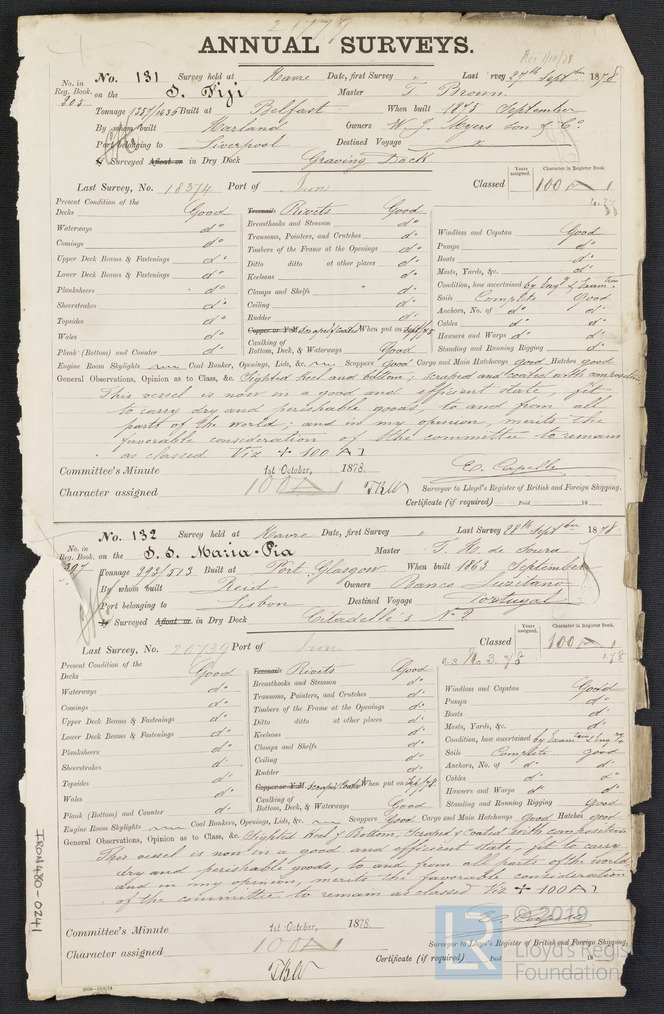 21778
ANNUAL SURVEYS.
Rec 1/10/78
No. in Reg. Book. No. 131 Survey held at Havre Date, first Survey " Last Survey 27th Septber 1878
305 on the S. Fiji Master T. Brown
Tonnage 1357/1436 Built at Belfast When built 1875 September
By whom built Harland Owners W. J. Myers son & Co.
Port belonging to Liverpool Destined Voyage
If Surveyed Afloat or in Dry Dock Graving Dock
Years assigned. Character in Register Book.
Last Survey, No. 18374 Port of Iron Classed 100 A 1
Present Condition of the
Decks Good
Waterways do
Comings do
Upper Deck Beams & Fastenings do
Lower Deck Beams & Fastenings do
Planksheers do
Sheerstrakes do
Topsides do
Wales do
Plank (Bottom) and Counter do
Treenails Rivets Good
Breasthooks and Stemson do
Transoms, Pointers, and Crutches do
Timbers of the Frame at the Openings do
Ditto ditto at other places do
Keelsons do
Clamps and Shelfs do
Ceiling do
Rudder do
Copper or Y.M. Scraped & coated When put on Sept/78
Caulking of Bottom, Deck, & Waterways Good
Windlass and Capstan Good
Pumps do
Boats do
Masts, Yards, &c. do
Condition, how ascertained by Enqy & Examtion
Sails Complete Good
Anchors, No. of do do
Cables do do
Hawsers and Warps do do
Standing and Running Rigging do
Engine Room Skylights Coal Bunker, Openings, Lids, &c. Scuppers Good Cargo and Main Hatchways good Hatches good
General Observations, Opinion as to Class, &c. Sighted keel and bottom; scraped and coated with composition
This vessel is now in a good and efficient state, fit
to carry dry and perishable goods, to and from all
parts of the world; and in my opinion, merits the
favorable consideration of the committee to remain
as classed Viz ✠ 100 A 1
Committee's Minute 1st October, 1878. E. Capelle
Character assigned 100 A 1 Surveyor to Lloyd's Register of British and Foreign Shipping.
Certificate (if required) Paid 18
No. in Reg. Book. No. 132 Survey held at Havre Date, first Survey " Last Survey 28th Septber 1878
397 on the S. S. Maria-Pia Master T. H. de Soura
Tonnage 393/513 Built at Port Glasgow When built 1863 September
By whom built Reid Owners Banco Luzitano
Port belonging to Lisbon Destined Voyage Portugal
If Surveyed Afloat or in Dry Dock Citadelle's No 2
Years assigned. Character in Register Book.
Last Survey, No. 20739 Port of Iron Classed 100 A 1
Present Condition of the
Decks Good
Waterways do
Comings do
Upper Deck Beams & Fastenings do
Lower Deck Beams & Fastenings do
Planksheers do
Sheerstrakes do
Topsides do
Wales do
Plank (Bottom) and Counter do
Treenails Rivets Good
Breasthooks and Stemson do
Transoms, Pointers, and Crutches do
Timbers of the Frame at the Openings do
Ditto ditto at other places do
Keelsons do
Clamps and Shelfs do
Ceiling do
Rudder do
Copper or Y.M. Scraped & Coated When put on Sept/78
Caulking of Bottom, Deck, & Waterways Good
Windlass and Capstan Good
Pumps do
Boats do
Masts, Yards, &c. do
Condition, how ascertained by Examtion & Enqry
Sails Complete good
Anchors, No. of do do
Cables do do
Hawsers and Warps do do
Standing and Running Rigging Good
Engine Room Skylights Coal Bunkers, Openings, Lids, &c. Scuppers Good Cargo and Main Hatchways Good Hatches good
General Observations, Opinion as to Class, &c. Sighted Keel & Bottom, Scraped & Coated with composition
This vessel is now in a good and efficient state, fit to carry
dry and perishable goods, to and from all parts of the world,
and in my opinion, merits the favorable consideration
of the committee to remain as classed Viz ✠ 100 A 1
Committee's Minute 1st October, 1878. E. Capelle
Character assigned 100 A 1 Surveyor to Lloyd's Register of British and Foreign Shipping.
Certificate (if required) Paid 18
IRON480-0241
LR © 2019
Lloyd's Regis
Foundation